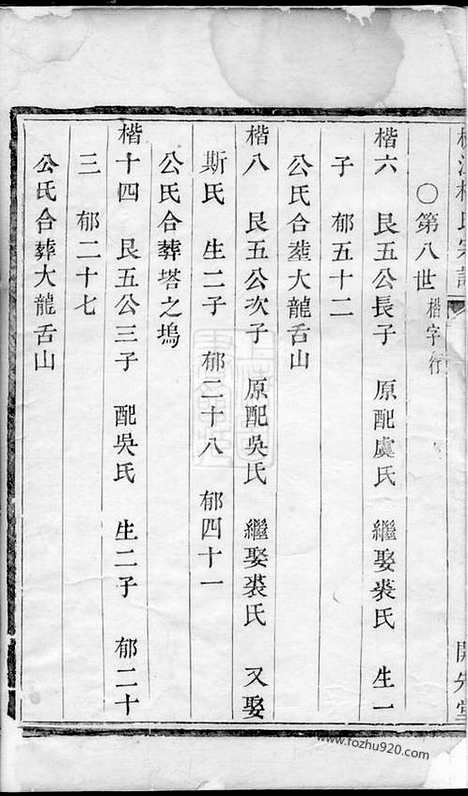 ○第八世 楷字行
楷六 艮五公長子 原配虞氏 繼娶裘氏 生一
子 郁五十二
公氏合葬大龍舌山
楷八 艮五公次子 原配吳氏 繼娶裘氏 又娶
斯氏 生二子 郁二十八 郁四十一
公氏合葬塔之塢
楷十四 艮五公三子 配吳氏 生二子 郁二十
三 郁二十七
公氏合葬大龍舌山
www.fozhu920.com